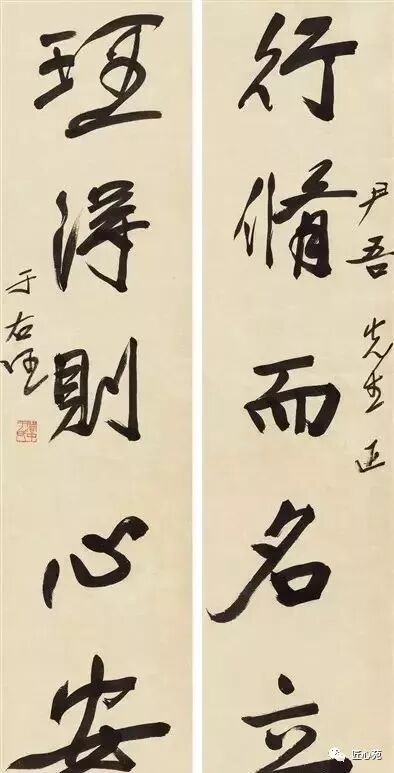 尹吾先生正
行脩而名立
理得則心安
于右任
關中于氏
匠心苑